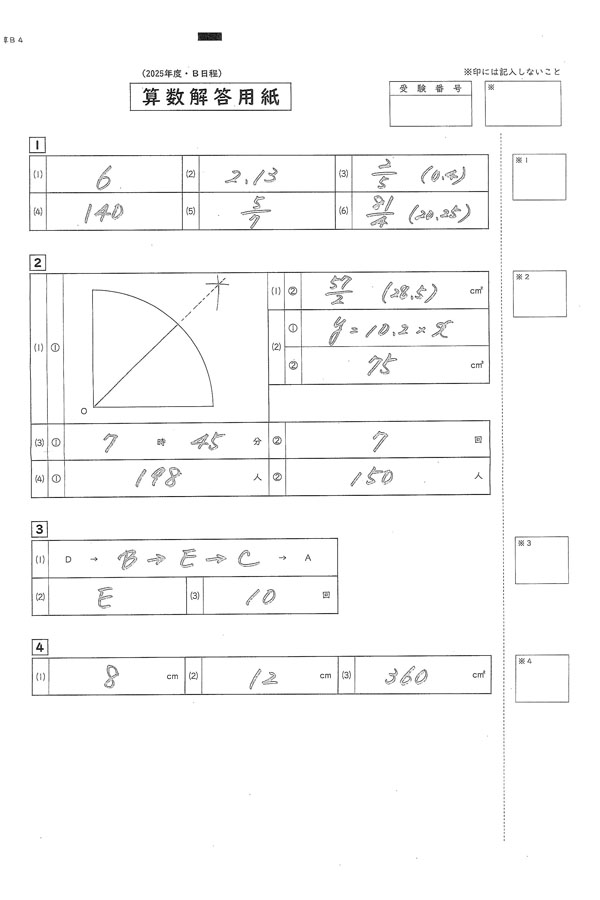 算B4
(2025年度・B日程)
※印には記入しないこと
算数解答用紙
受験番号
※
1
(1) 6 (2) 2.13 (3) 2/5 (0.4)
※1
(4) 140 (5) 5/7 (6) 81/4 (20.25)
2
(1) ② 57/2 (28.5) cm²
※2
(1) ① O
(2) ① y=10.2×x
② 75 cm²
(3) ① 7 時 45 分 ② 7 回
(4) ① 198 人 ② 150 人
3
※3
(1) D → B → E → C → A
(2) E (3) 10 回
4
※4
(1) 8 cm (2) 12 cm (3) 360 cm²